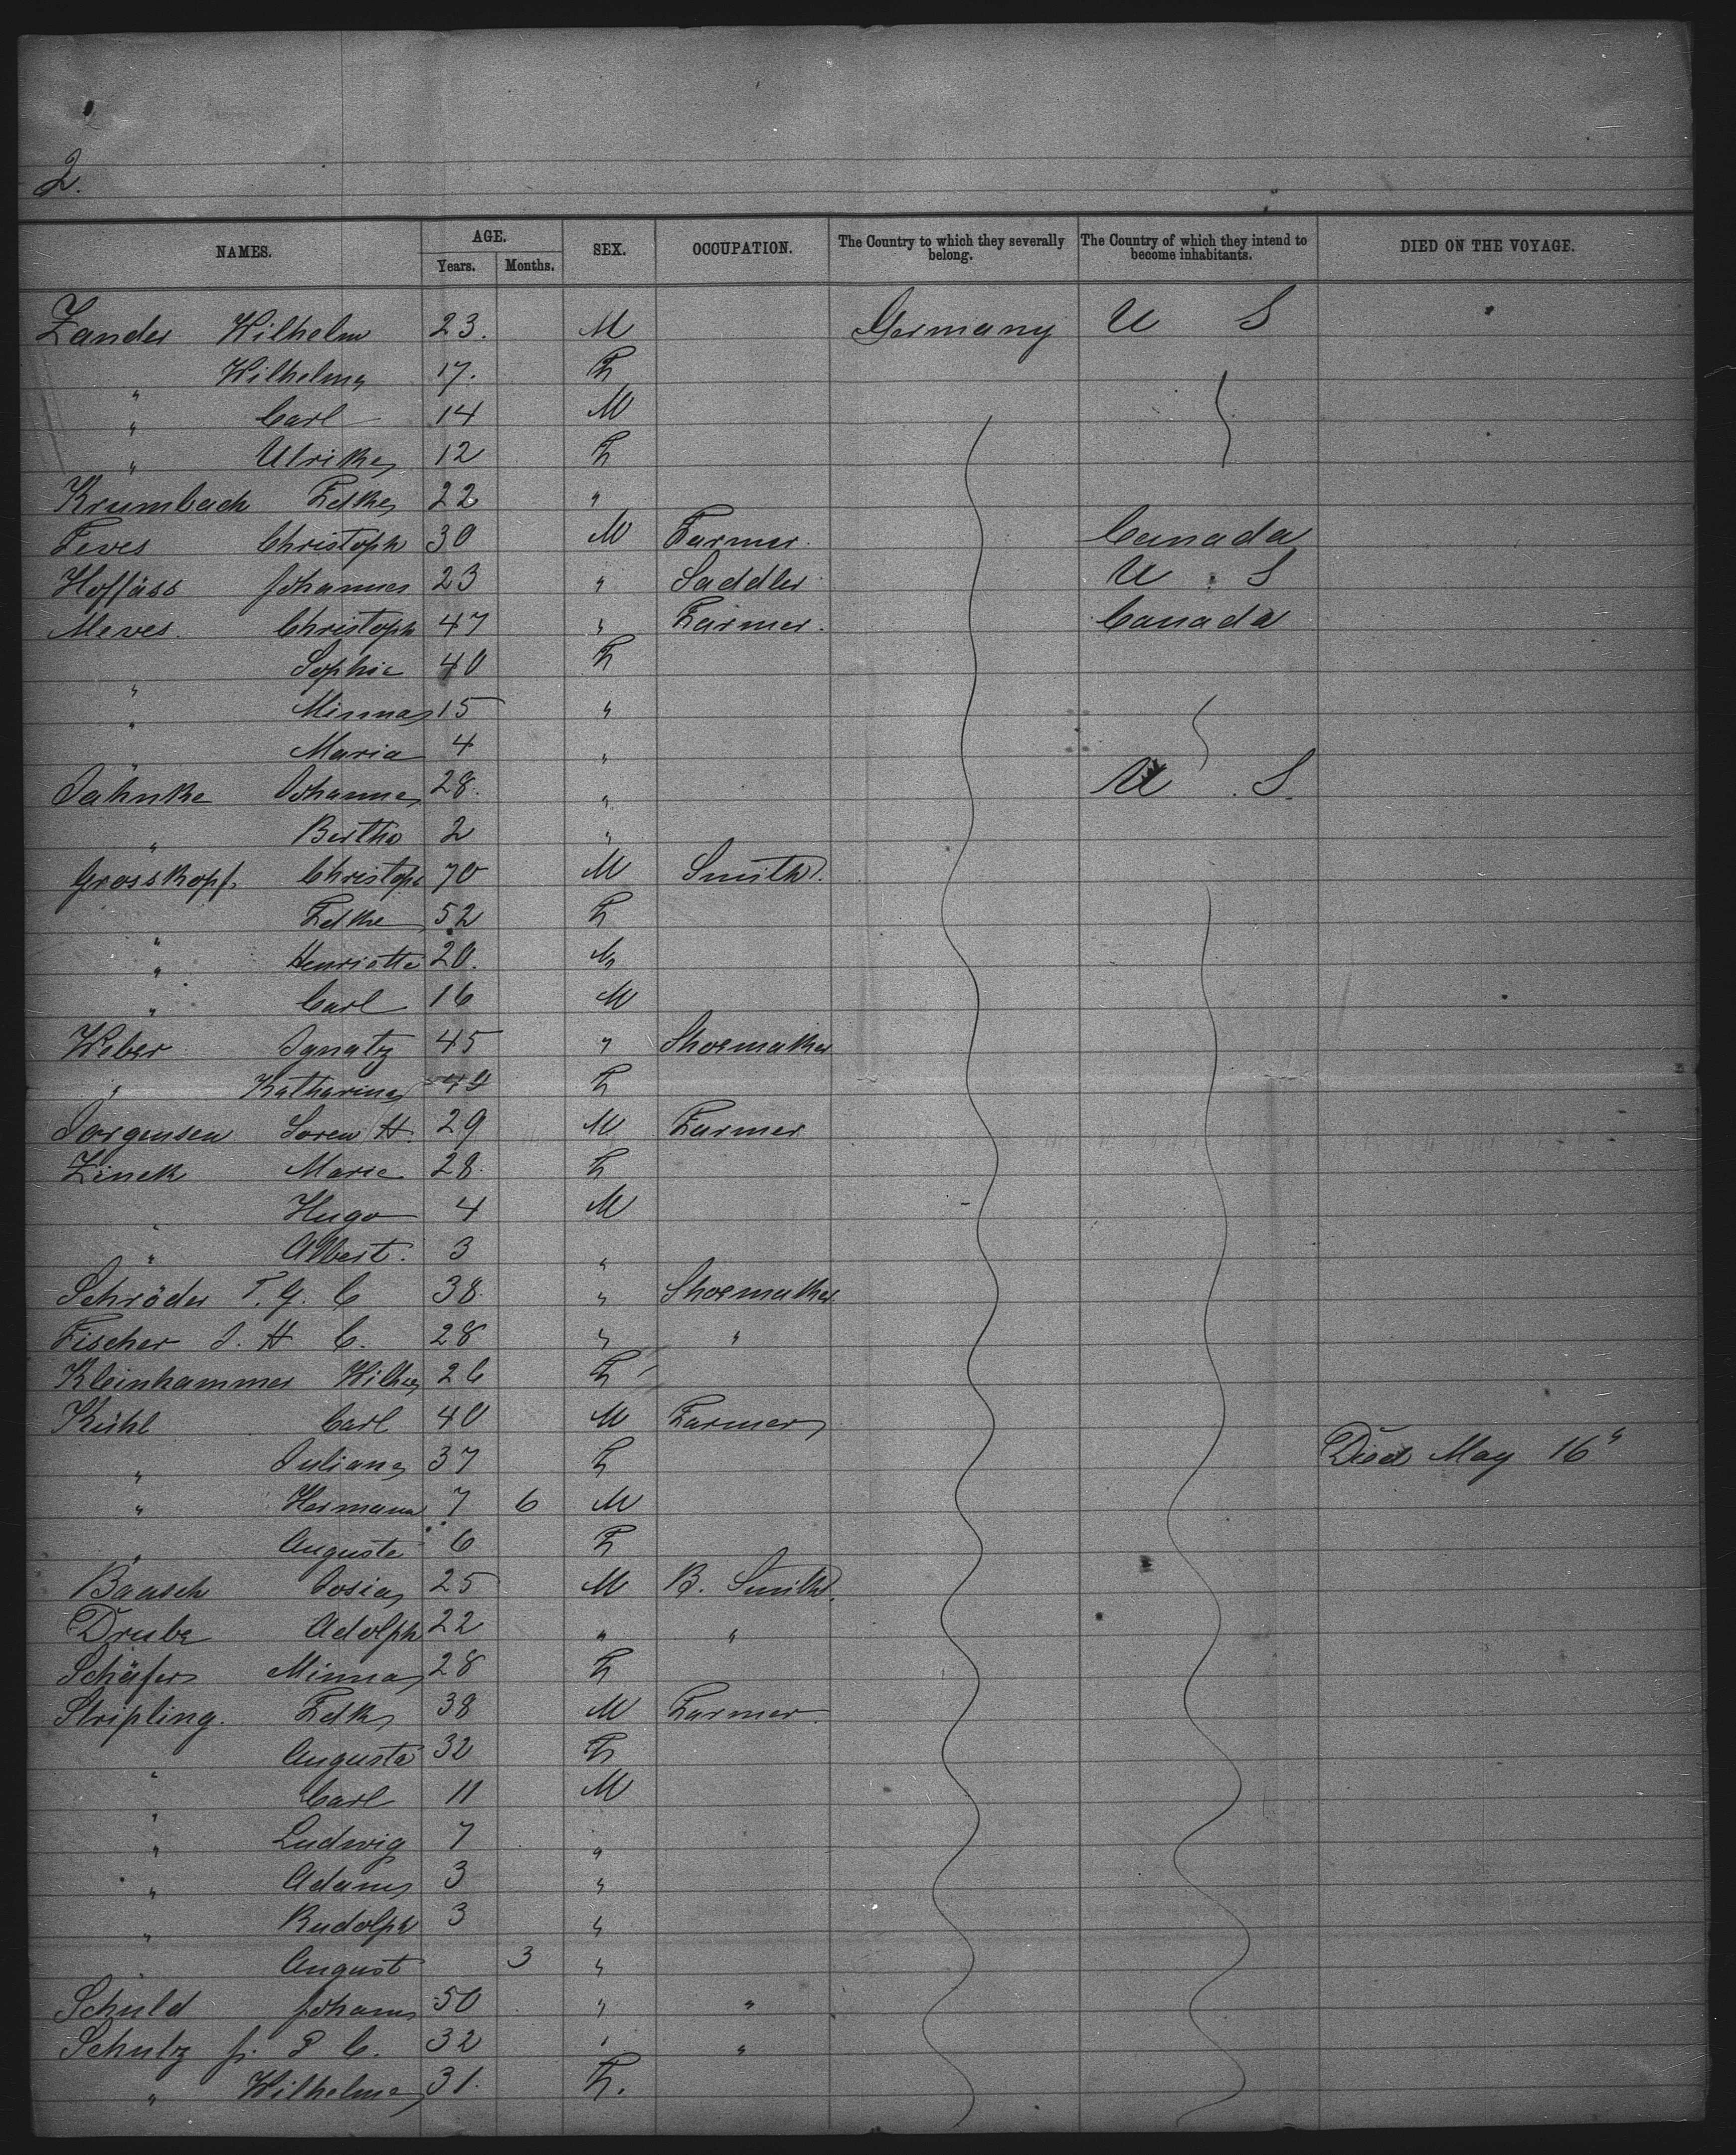 2.
NAMES. AGE. Years. Months. SEX. OCCUPATION. The Country to which they severally belong. The Country of which they intend to become inhabitants. DIED ON THE VOYAGE.
Zander Wilhelm 23. M Germany U S
" Wilhelma 17. F
" Carl 14 M
" Ulrike 12 F
Krumbach Fdke 22 "
Feves Christoph 30 M Farmer. Canada
Hoffäss Johannes 23 " Saddler U. S
Meves. Christoph 47 " Farmer. Canada
" Sophie 40 F
" Minna 15 "
" Maria 4 "
Jahnke Johanna 28. " U. S.
" Bertha 2 "
Grosskopf. Christoph 70 M Smith.
" Fdke 52 F
" Henriette 20.
" Carl 16 M
Weber Ignatz 45 " Shoemaker
" Katharina 44 F
Jorgensen Soren H. 29 M Farmer
Zinck Marie 28. F
" Hugo 4 M
" Albert. 3 "
Schröder T. G. C 38. " Shoemaker
Fischer J. H C. 28 " "
Kleinhammer Wilha 26 F
Kühl Carl 40 M Farmer
" Juliana 37 F Died May 16"
" Hermann 7 6 M
" Auguste 6 F
Baasch Josias 25 M B. Smith.
Drube Adolph 22 " "
Schäfer Minna 28 F
Stripling. Fdk 38 M Farmer
" Augusta 32 F
" Carl 11 M
" Ludwig 7 "
" Adam 3 "
" Rudolph 3 "
" August 3 "
Schuld Johann 50 " "
Schulz J. P C. 32 " "
" Wilhelma 31. F.